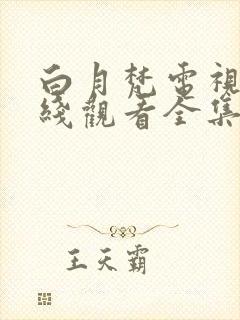 白月梵電視
綫觀看全集
王天霸